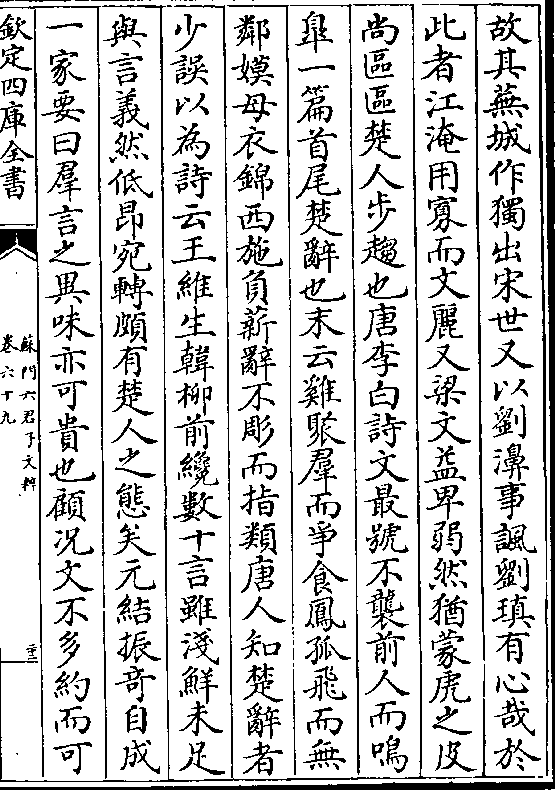 故其蕪城作獨出宋世又以劉濞事諷劉瑱有心哉於
此者江淹用寡而文麗又梁文益卑弱然猶蒙虎之皮
尚區區楚人步趨也唐李白詩文最號不襲前人而鳴
臯一篇首尾楚辭也末云雞聚羣而爭食鳳孤飛而無
鄰嫫母衣錦西施負薪辭不彫而指類唐人知楚辭者
少誤以為詩云王維生韓柳前纔數十言雖淺鮮未足
與言義然低昂宛轉頗有楚人之態矣元結振奇自成
一家要曰羣言之異味亦可貴也顧況文不多約而可
欽定四庫全書
蘇門六君子文粹
卷六十九
二十二